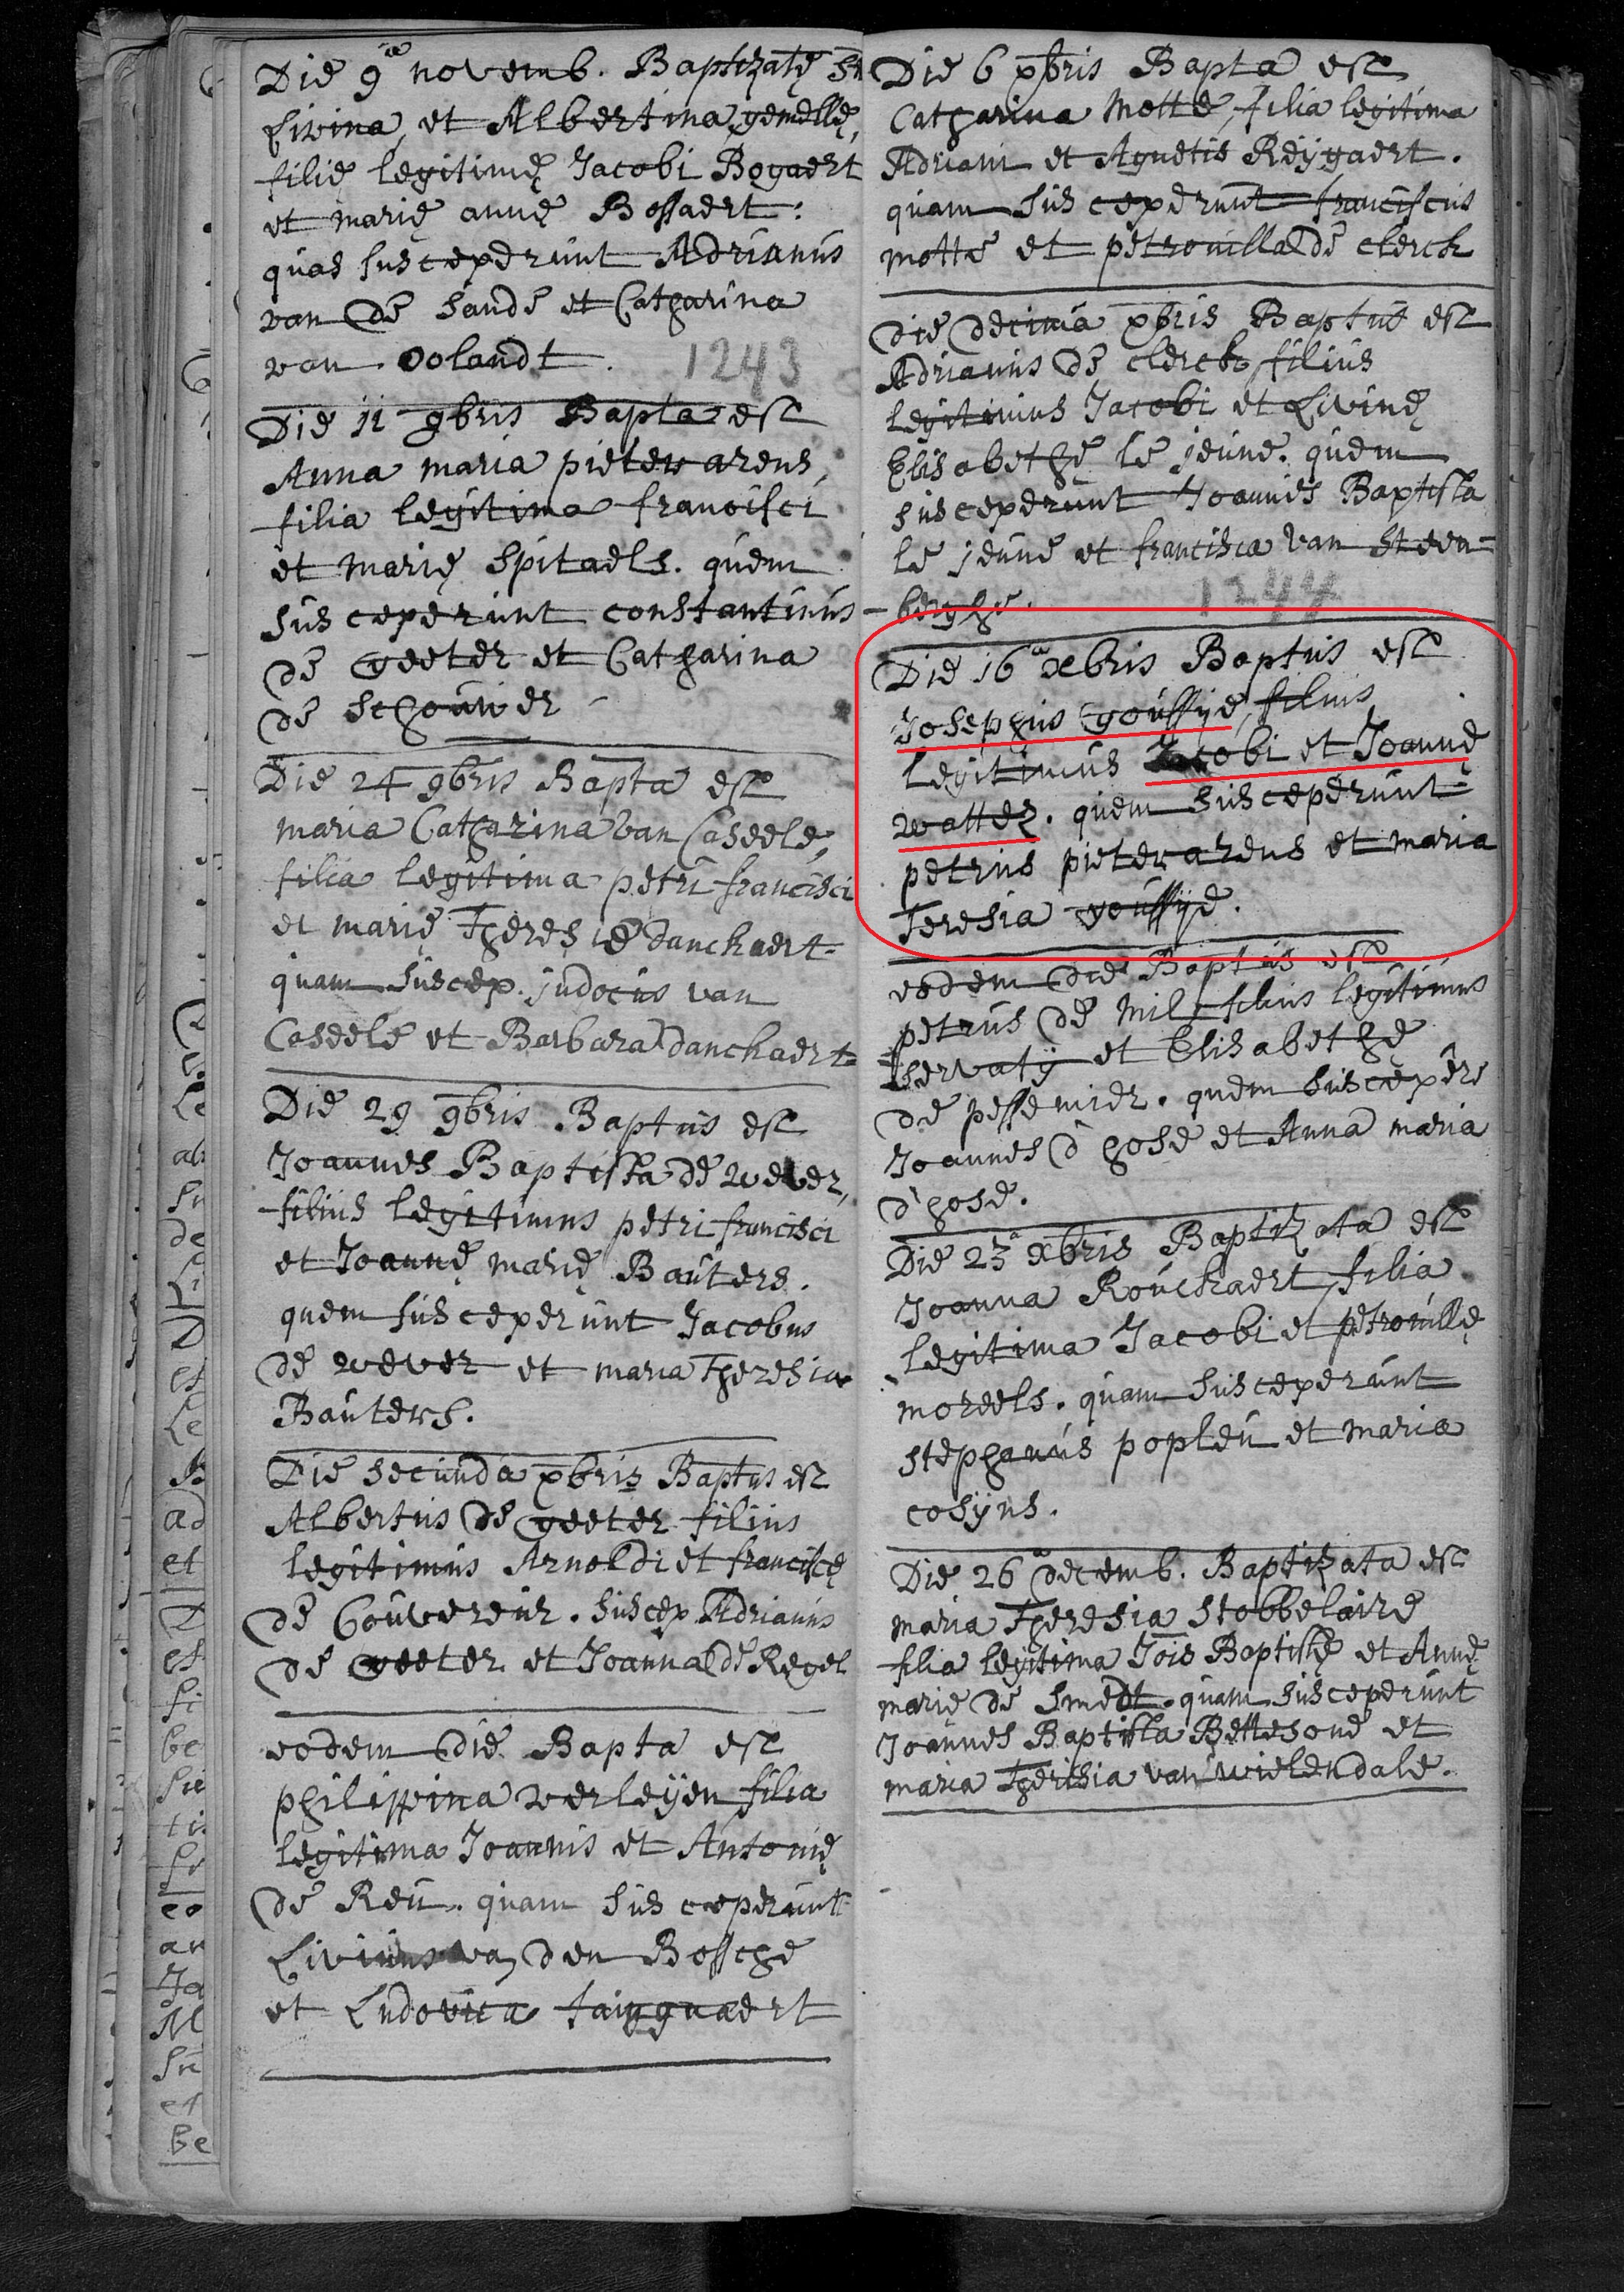 Die 9a novemb. Baptizatę sn
Livina et Albertina gemellę,
filię legitimę Jacobi Bogaert
et marię annę Bossaert:
quas susceperunt Adrianus
van de sande et Catharina
van Oolandt.
1243
Die 11 9bris Bapta est
Anna maria pieters arens,
filia legitima francisci
et marię Spitaels. quem
susceperunt constantinus
de geeter et Catharina
de schouwer
Die 24 9bris Bapta est
maria Catharina van Caseele,
filia legitima petri francisci
et marię Theresię danckaert
quam suscep. judocus van
Caseele et Barbara danckaert
Die 29 9bris Baptus est
Joannes Baptista de wever,
filius legitimus petri francisci
et Joannę marię Bauters.
quem susceperunt Jacobus
de wever et maria Theresia
Bauters.
Die secunda xbris Baptus est
Albertus de geeter filius
legitimus Arnoldi et franciscę
de Gouvereur. suscep Adrianus
de geeter et Joanna de Regel
eodem die Bapta est
philippina verleyen filia
legitima Joannis et Antonię
de Reu. quam susceperunt
Livinus van den Bossche
et Ludovica
Die 6 xbris Bapta est
Catharina Motte, filia legitima
Adriani et Agnetis Reygaert.
quam susceperunt franciscus
motte et petronilla de clerck
die decima xbris Baptus est
Adrianus de clerck filius
legitimus Jacobi et Livinę
Elisabethę le jeune. quem
susceperunt Joannes Baptista
le jeune et francisca van steen=
-berghe.
1244
Die 16a xbris Baptus est
Josephus goussye, filius
legitimus Jacobi et Joannę
wattez. quem susceperunt
petrus pieters arens et maria
teresia goussye.
eodem die Baptus est
petrus de Mil filius legitimus
servaty et Elisabethę
de pessemier. quem suscepere
Joannes d'hose et Anna maria
d'hose.
Die 23a xbris Baptizata est
Joanna Rouckaert, filia
legitima Jacobi et petronillę
moreels. quam susceperunt
stephanus popleu et maria
cosyns.
Die 26a decemb. Baptizata est
maria Theresia stobbelaire
filia legitima Jois Baptistę et Annę
marię de smedt. quam susceperunt
Joannes Baptista Bettesone et
maria Theresia van wielendale.